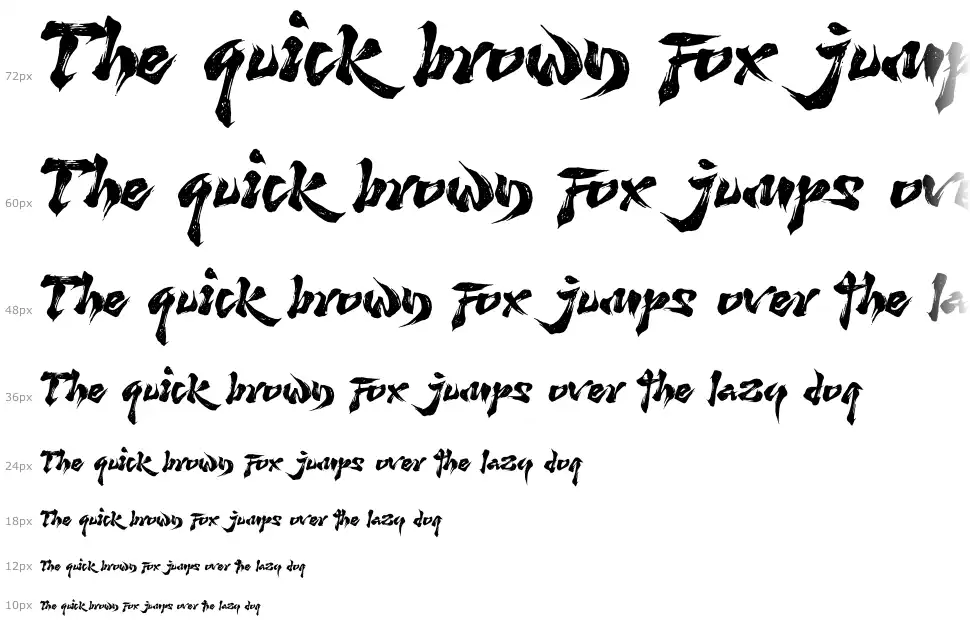 72px The quick brown Fox jump
60px The quick brown Fox jumps ove
48px The quick brown Fox jumps over the la
36px The quick brown Fox jumps over the lazy dog
24px The quick brown Fox jumps over the lazy dog
18px The quick brown Fox jumps over the lazy dog
12px The quick brown Fox jumps over the lazy dog
10px The quick brown Fox jumps over the lazy dog